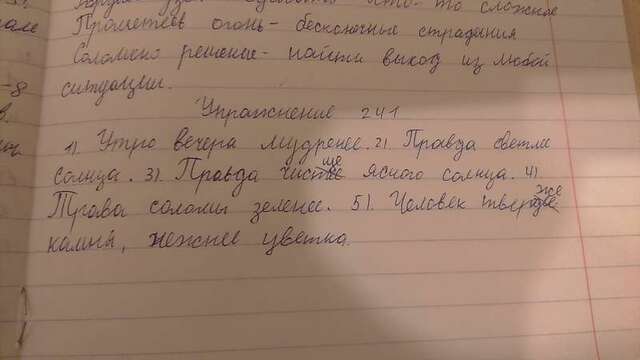 сложное
Прометеев огонь - бесконечные страдания
Соломоно решение - найти выход из любой
ситуации.
Упражнение 241
1). Утро вечера мудренее. 2). Правда светлее
солнца. 3). Правда чище ясного солнца. 4).
Трава соломы зеленее. 5). Человек тверже
камня, нежнее цветка.